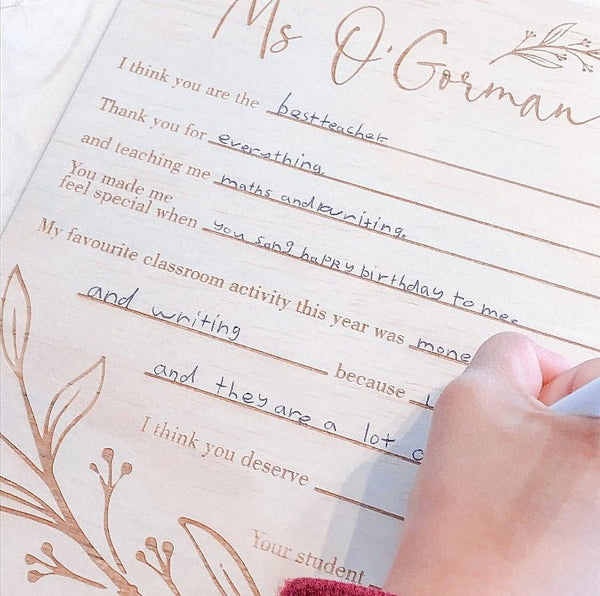 Ms O'Gorman
I think you are the best teacher.
Thank you for everything.
and teaching me maths and writing.
You made me
feel special when you sang happy birthday to me.
My favourite classroom activity this year was
and writing because
and they are a lot
I think you deserve
Your student